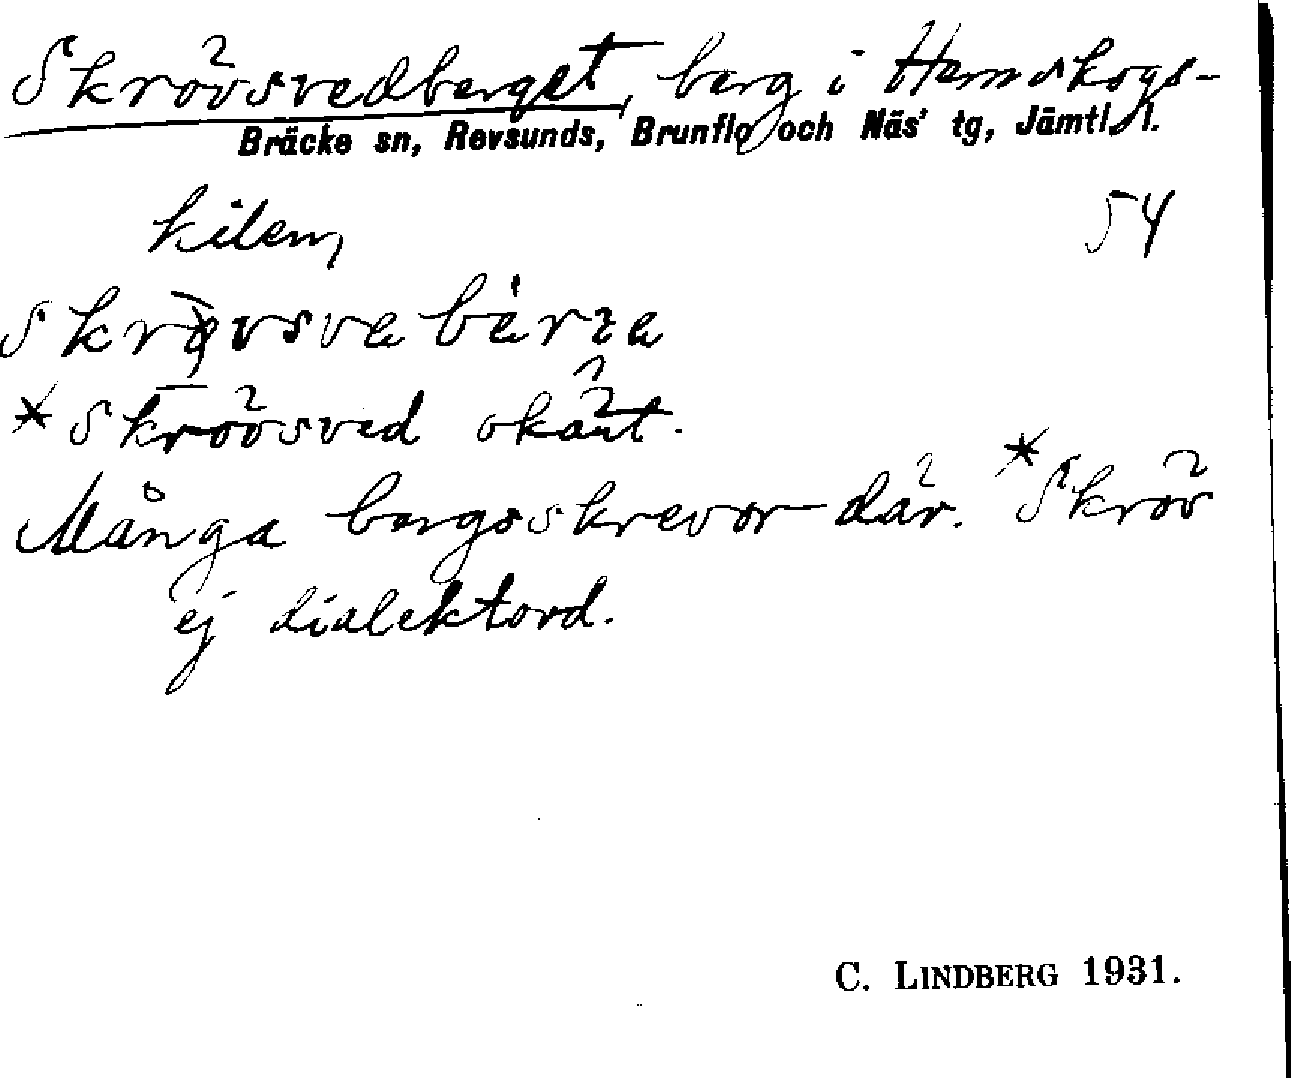 Skrövsvedberget, berg i Hemskogs-
Bräcke sn, Revsunds, Brunflo och Näs' tg, Jämtl. l.
kilen, 54
*Skrövsved okänt.
Många bergsskrevor där. *Skröv
ej dialektord.
C. LINDBERG 1931.